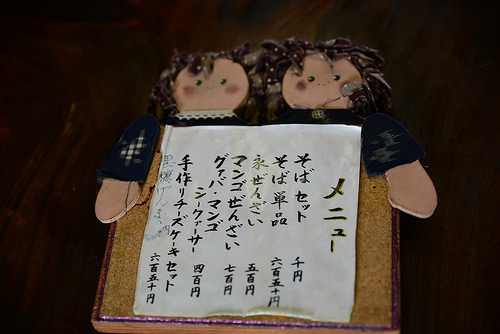 メニュー
そばセット 千円
そば単品 六百五十円
氷ぜんざい 五百円
マンゴぜんざい 七百円
グァバ・マンゴ
シークァーサー 四百円
手作りチーズケーキセット 六百五十円